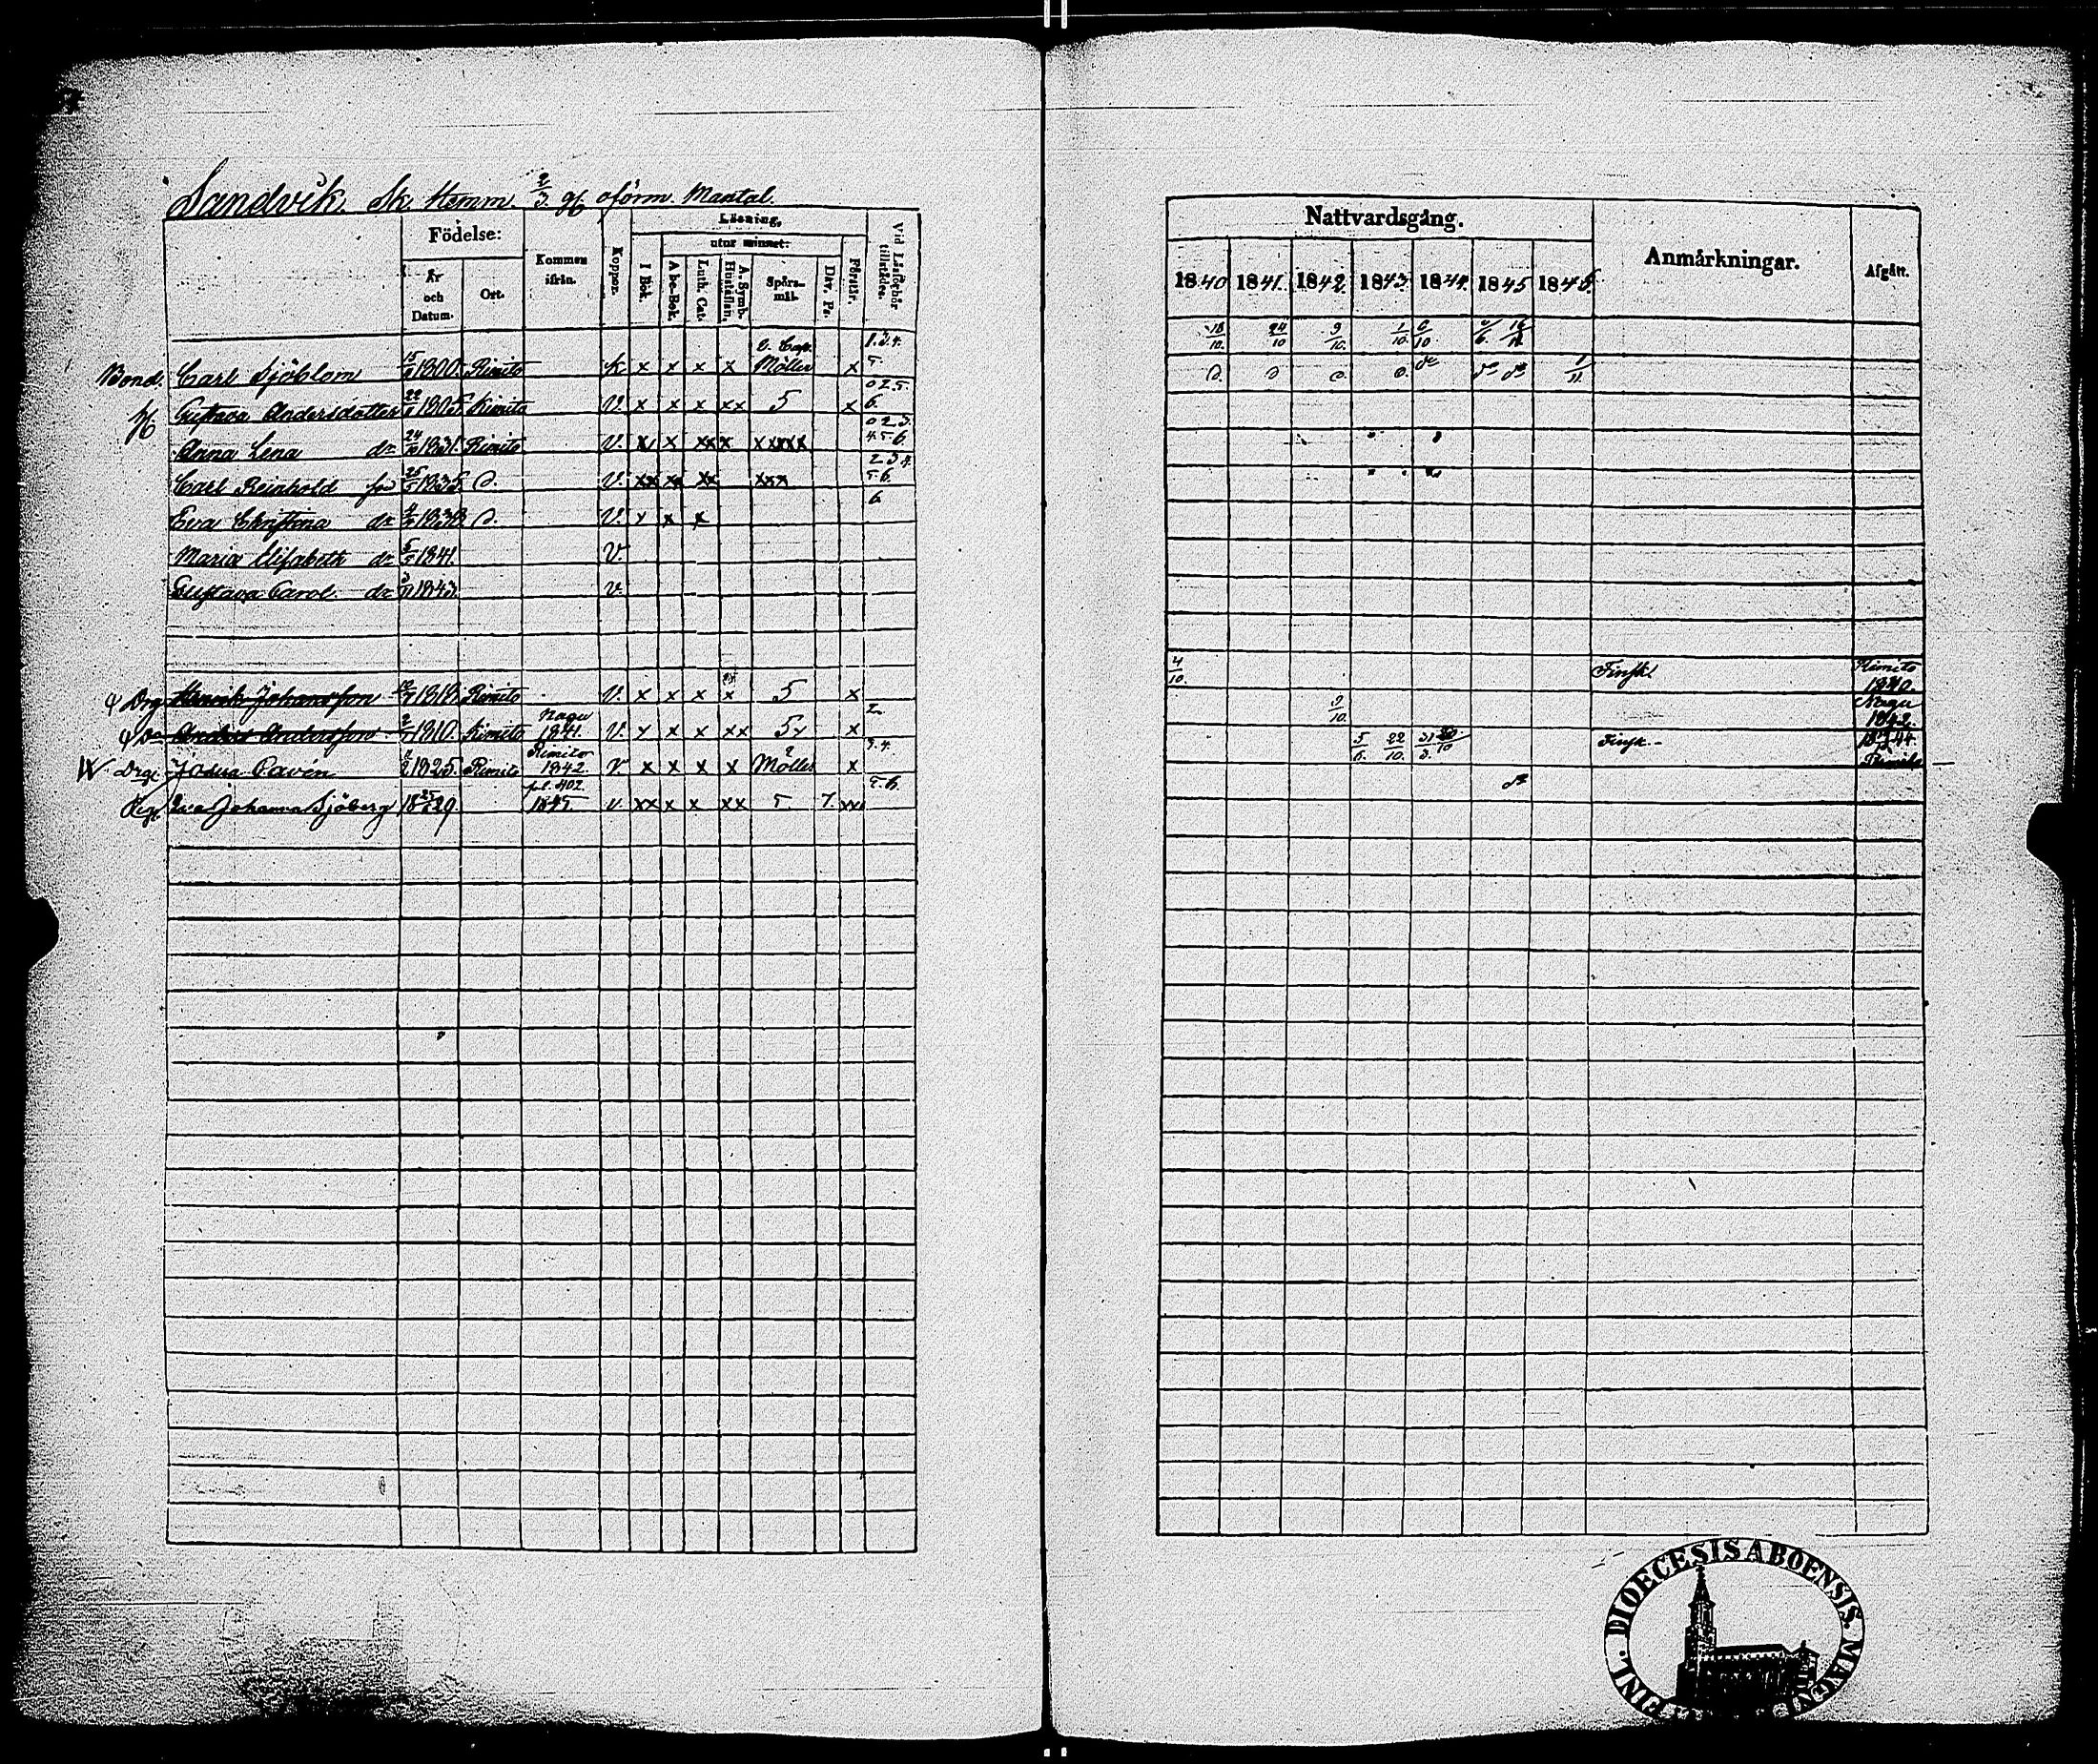 Sandvik. Sk. Hemm. 2/3 gl. oförm. Mantal.
Födelse:
År och Datum.
Ort.
Kommen ifrån.
Koppor.
Läsning,
I Bok.
utur minnet:
Abc-Bok.
Luth. Cat.
A. Symb. Hustaflan.
Spörsmål.
Dav. Ps.
Förstår.
Vid Läsförhör tillstädes.
Bond. Carl Sjöblom 15/ 1800. Rimito K x x x x Möller x 1.3.4. 5
H Gustava Andersdotter 22/ 1805. Rimito V. x x x xx 5 x 0 2 5. 6.
Anna Lena dr 24/10 1831. Rimito V. x x xx x xxxxx 0 2 3. 4. 5 6
Carl Reinhold so 25/ 1835 D. V. xx xx xx xxx 2 3 4. 5 6.
Eva Christina dr 1838 D. V. x x x 6
Maria Elisabeth dr 5/ 1841. V.
Gustava Carol. dr 1843. V.
Drg Henrik Johansson 1818. Rimito V. x x x x 5 x
Do Anders Andersson 1810. Rimito Nagu 1841. V. x x x xx 5x x 2
Drg. Josua Cavén 1825. Rimito Rimito 1842. V. x x x x Möller x 3. 4.
Pig. Eva Johanna Sjöberg 18 25/ 29 fol. 402 1845 v. xx x x xx 5 7. xx 5. 6.
Nattvardsgång.
1840 1841. 1842. 1843. 1844. 1845 1846.
Anmärkningar.
Afgått.
18/10. 24/10 9/10. 1/10. 6/10
D. D D. D. do do do 1/11.
4/10. Finsk. Rimito 1840.
9/10. Nagu 1842.
5/6. 22/10. 31/3. Finsk. 1844 Rimito
do
FINL. DIOECESIS ABOENSIS.